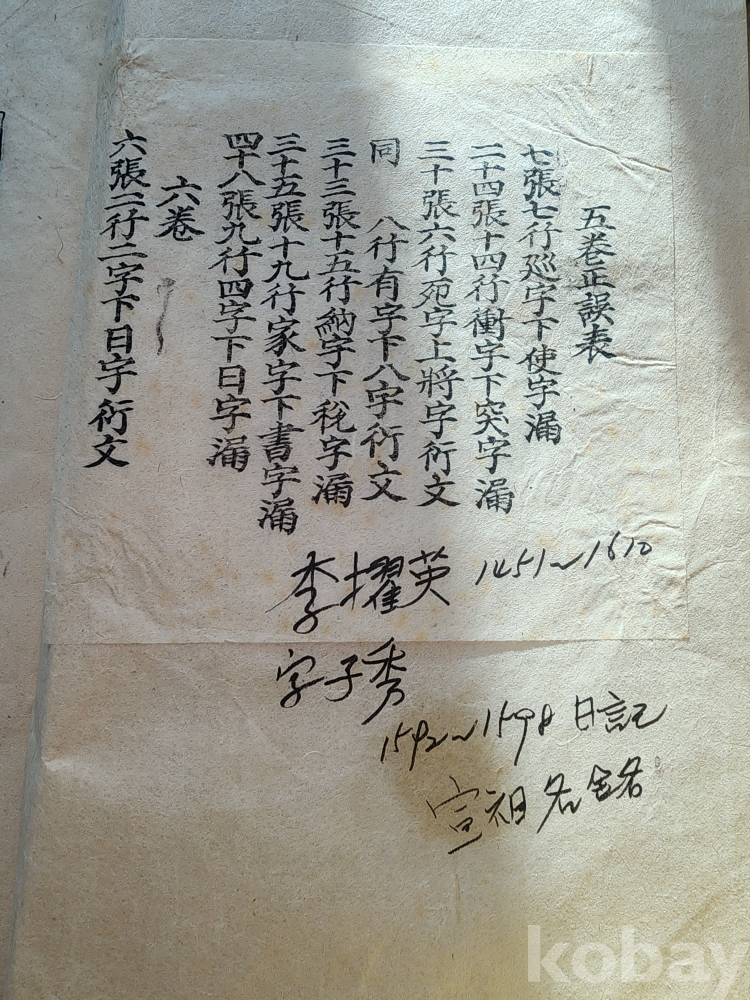 五卷正誤表
七張七行巡字下使字漏
二十四張十四行衝字下突字漏
三十張六行宛字上將字衍文
同 八行有字下八字衍文
三十三張十五行納字下稅字漏
三十五張十九行家字下書字漏
四十八張九行四字下日字漏
六卷
六張二行二字下日字衍文
李擢英 1451~1610
字子秀
1592~1598 日記
宣祖
kobay